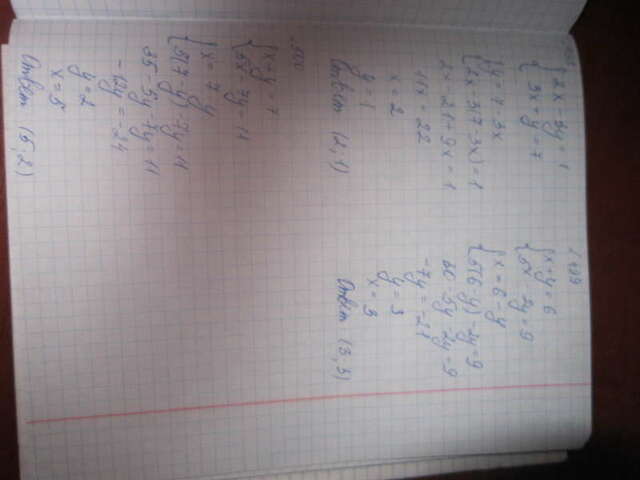 {2x - 3y = 1
{3x + y = 7
{y = 7 - 3x
{2x - 3(7 - 3x) = 1
2x - 21 + 9x = 1
11x = 22
x = 2
y = 1
Ответ (2; 1)
{x + y = 6
{5x - 2y = 9
{x = 6 - y
{5(6 - y) - 2y = 9
30 - 5y - 2y = 9
-7y = -21
y = 3
x = 3
Ответ (3; 3)
{x + y = 7
{5x - 7y = 11
{x = 7 - y
{5(7 - y) - 7y = 11
35 - 5y - 7y = 11
-12y = -24
y = 2
x = 5
Ответ (5; 2)